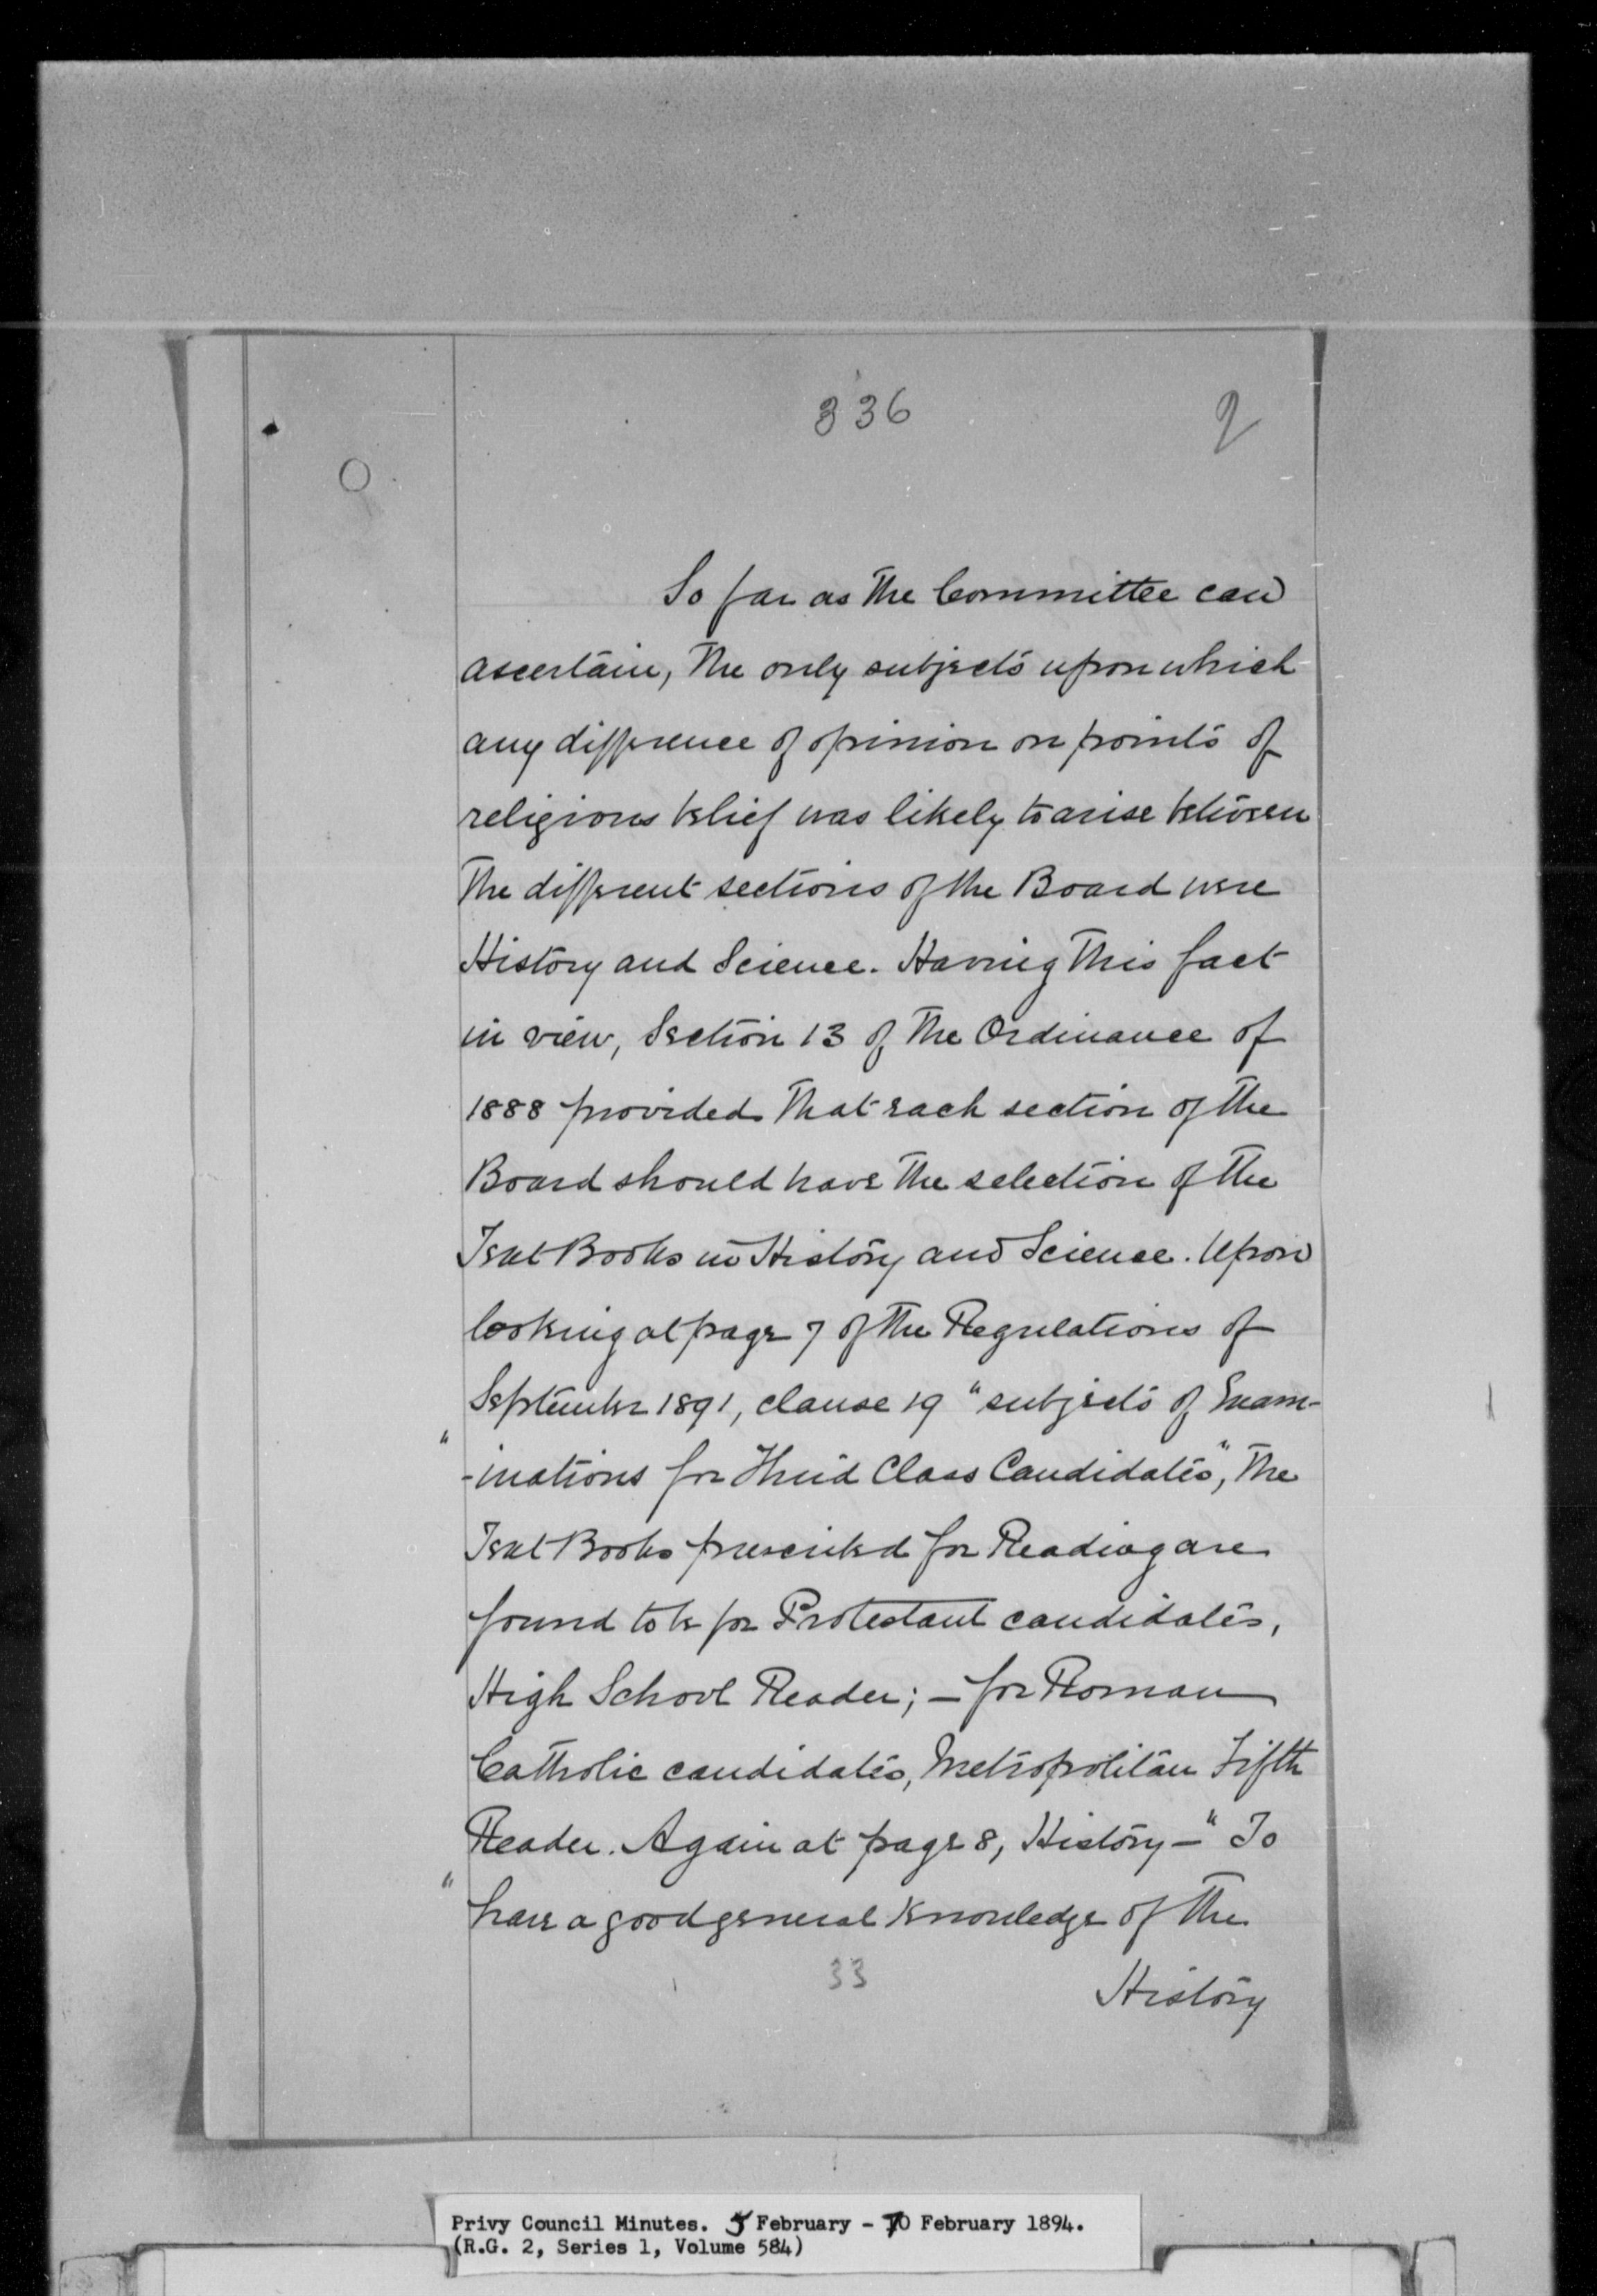 336
2
So far as the Committee can
ascertain, the only subjects upon which
any difference of opinion on points of
religious belief was likely to arise between
the different sections of the Board were
History and Science. Having this fact
in view, Section 13 of the Ordinance of
1888 provided that each section of the
Board should have the selection of the
Text Books in History and Science. Upon
looking at page 7 of the Regulations of
September 1891, clause 19 "subjects of Exam-
"-inations for Third Class Candidates", the
Text Books prescribed for Reading are
found to be for Protestant candidates,
High School Reader; - for Roman
Catholic candidates, Metropolitan Fifth
Reader. Again at page 8, History - "To
"have a good general knowledge of the
33
History
Privy Council Minutes. 5 February - 10 February 1894.
(R.G. 2, Series 1, Volume 584)